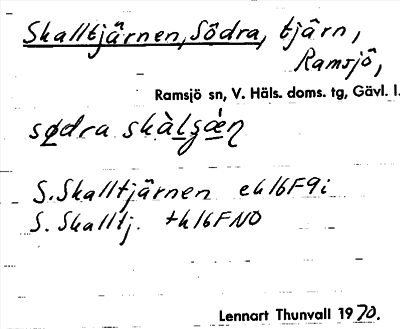 Skalltjärnen, Södra, tjärn,
Ramsjö,
Ramsjö sn, V. Häls. doms. tg, Gävl. l.
sødra skàlgǽn̥
S. Skalltjärnen ek 16F9i
S. Skalltj. tk 16FNO
Lennart Thunvall 1970.